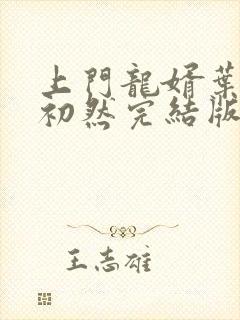 上門龍婿葉
初然完結版
王志雄